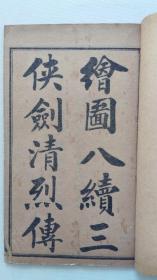 繪圖八續三
俠劍清烈傳